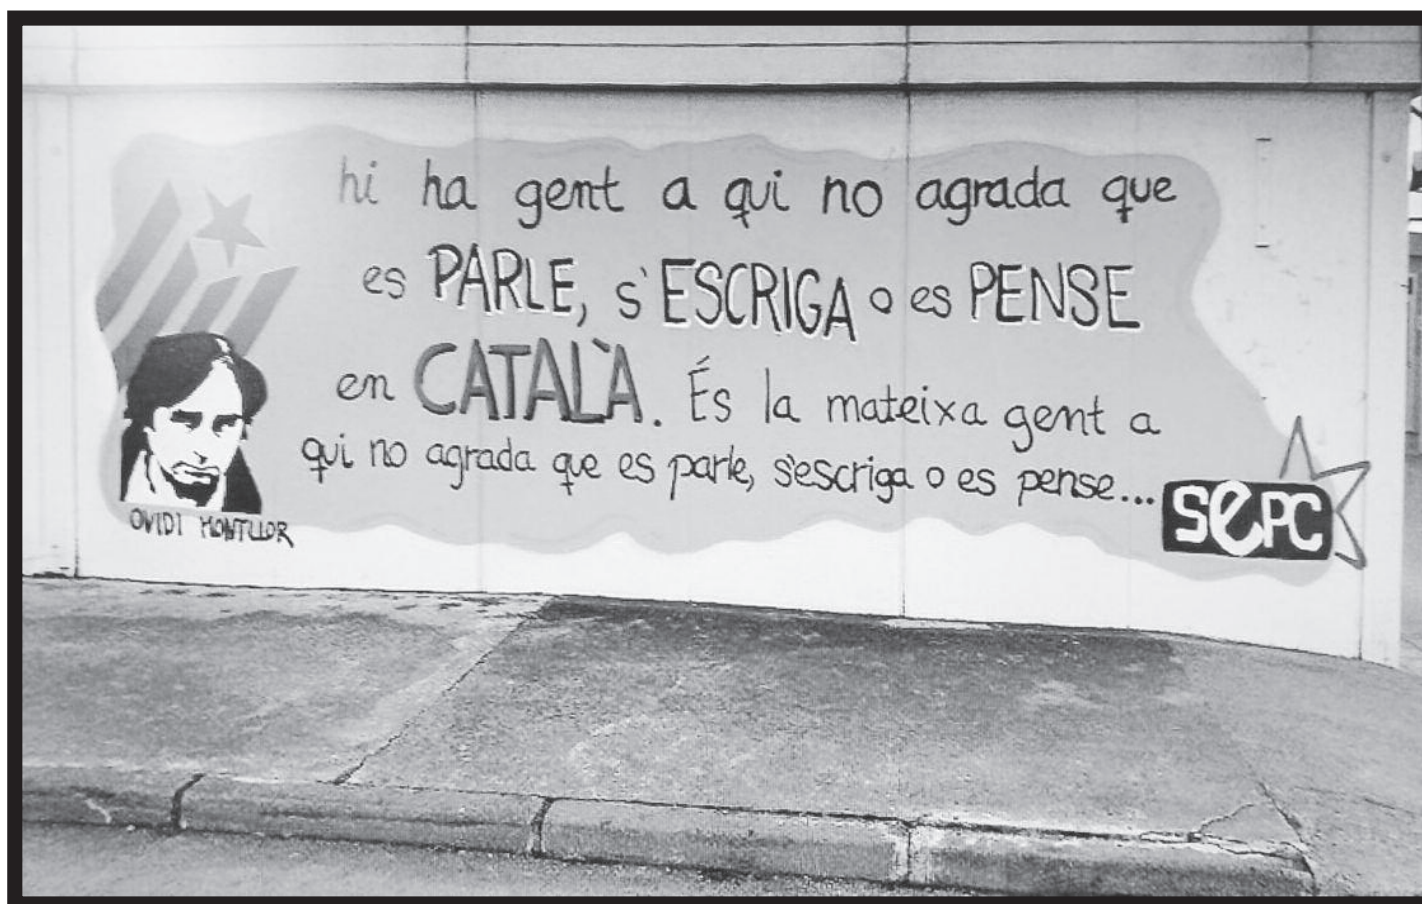 hi ha gent a qui no agrada que
es PARLE, s'ESCRIGA o es PENSE
en CATALÀ. És la mateixa gent a
qui no agrada que es parle, s'escriga o es pense...
SEPC
OVIDI MONTLLOR